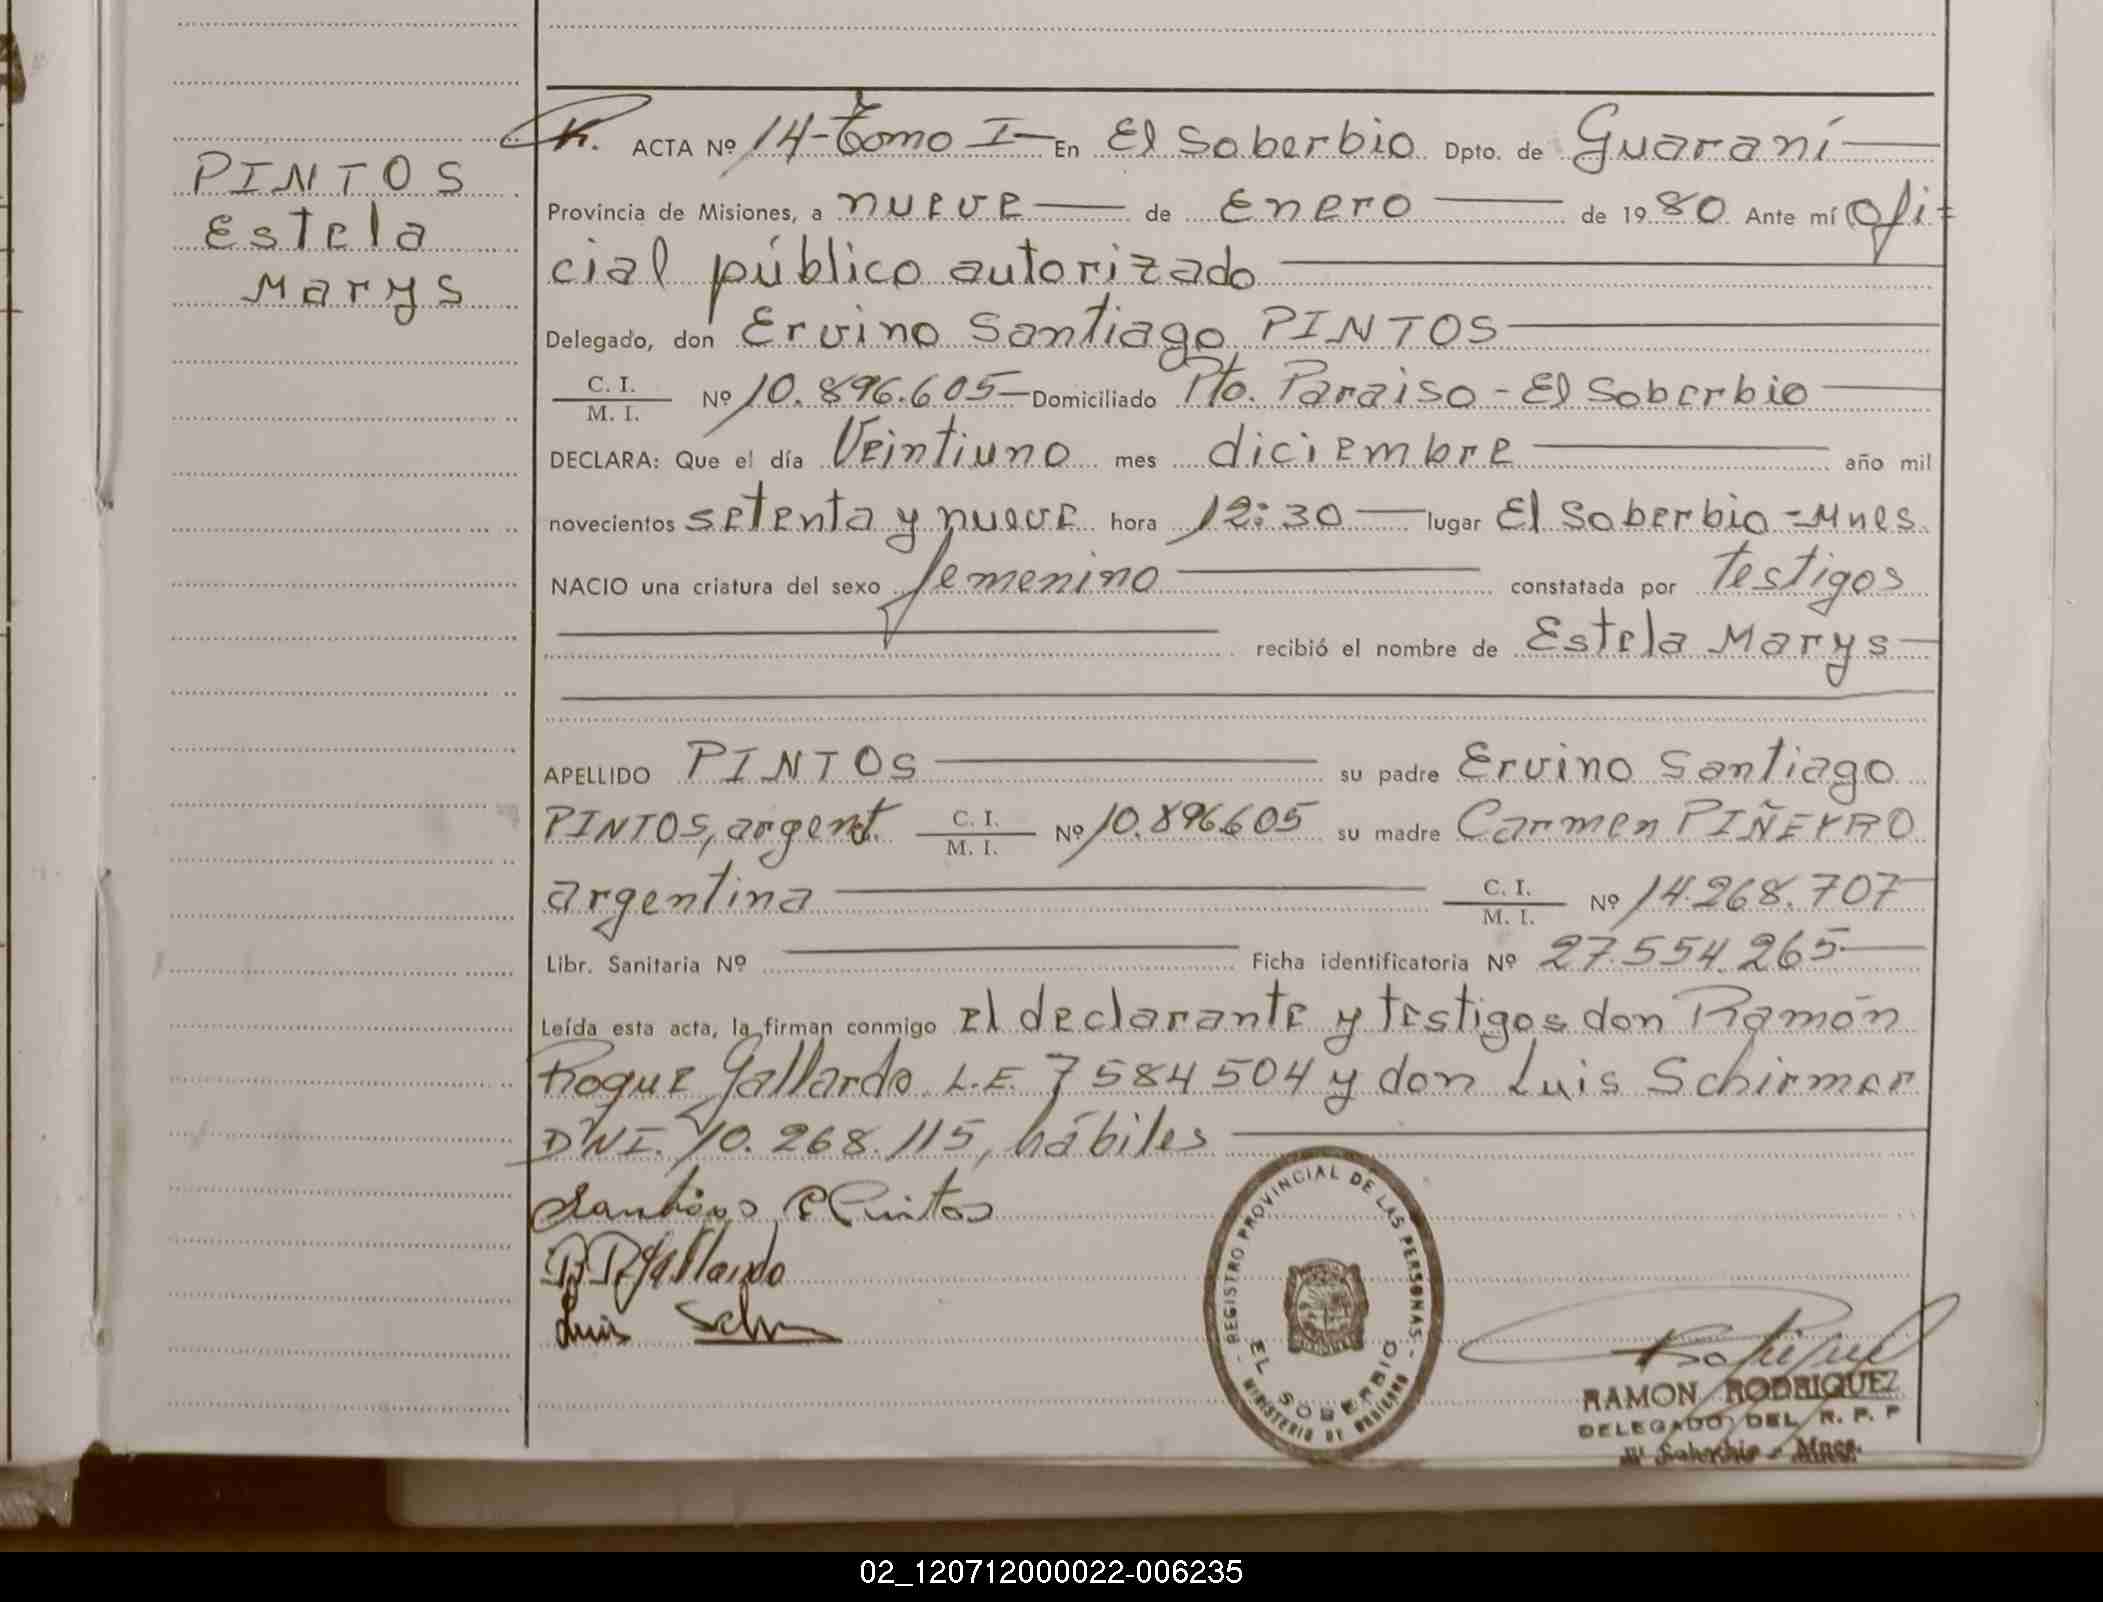 PINTOS
Estela
Marys
ACTA Nº 14-Tomo I- En El Soberbio Dpto. de Guaraní
Provincia de Misiones, a nueve de Enero de 1980 Ante mí Ofi-
cial público autorizado
Delegado, don Ervino Santiago PINTOS
C. I.
M. I. Nº 10.896.605 Domiciliado Pto. Paraiso - El Soberbio
DECLARA: Que el día Veintiuno mes diciembre año mil
novecientos setenta y nueve hora 12:30 lugar El Soberbio - Mnes.
NACIO una criatura del sexo femenino constatada por testigos
recibió el nombre de Estela Marys
APELLIDO PINTOS su padre Ervino Santiago
PINTOS, argent. C. I. M. I. Nº 10.896.605 su madre Carmen PIÑEYRO
argentina C. I. M. I. Nº 14.268.707
Libr. Sanitaria Nº Ficha identificatoria Nº 27.554.265
Leída esta acta, la firman conmigo el declarante y testigos don Ramón
Roque Gallardo L.E. 7584504 y don Luis Schirmer
DNI. 10.268.115, hábiles
Santiago E Pintos
R R Gallardo
Luis
REGISTRO PROVINCIAL DE LAS PERSONAS
EL SOBERBIO
MINISTERIO DE GOBIERNO
RAMON RODRIGUEZ
DELEGADO DEL R. P. P
El Soberbio - Mnes.
02_120712000022-006235